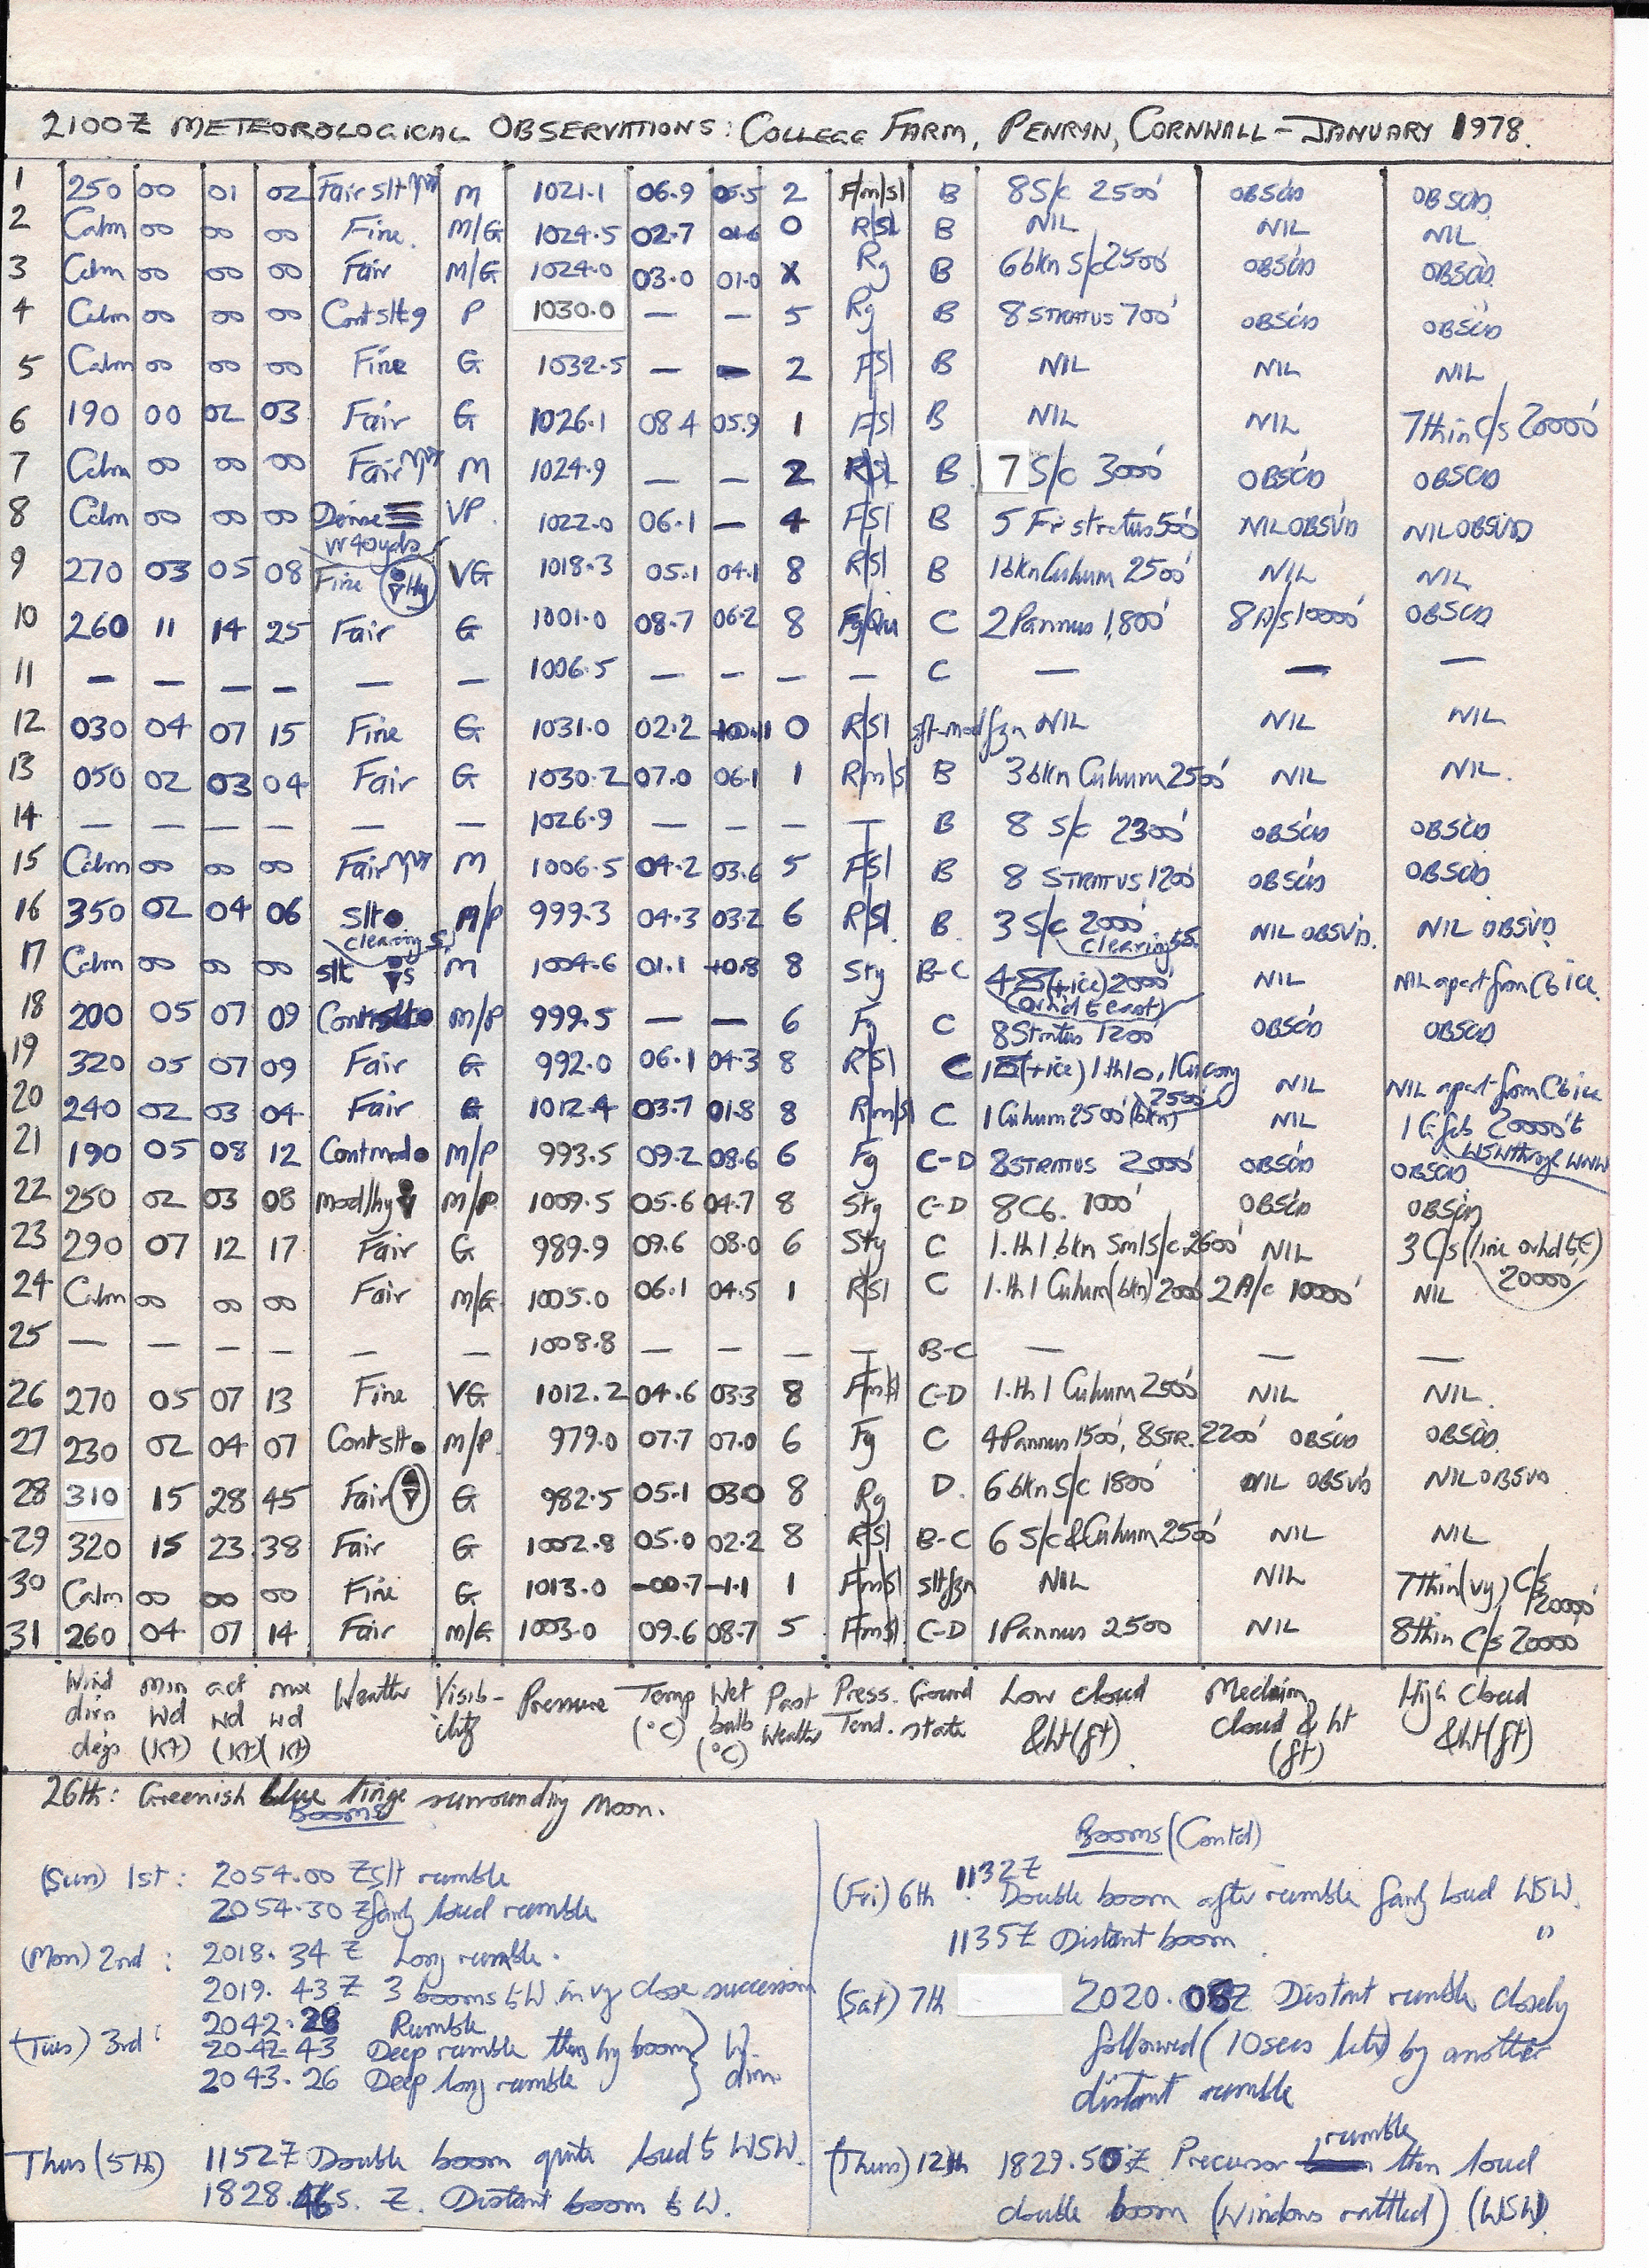 2100Z METEOROLOGICAL OBSERVATIONS: COLLEGE FARM, PENRYN, CORNWALL – JANUARY 1978.
1 250 00 01 02 Fair slt M 1021.1 06.9 05.5 2 F/m/sl B 8 S/c 2500' OBSC'D OBSC'D
2 Calm 00 00 00 Fine. M/G 1024.5 02.7 01.6 0 R/Sl B NIL NIL NIL
3 Calm 00 00 00 Fair M/G 1024.0 03.0 01.0 X Rg B 6 bkn S/c 2500' OBSC'D OBSC'D
4 Calm 00 00 00 Cont slt 9 P 1030.0 — — 5 Rg B 8 STRATUS 700' OBSC'D OBSC'D
5 Calm 00 00 00 Fine G 1032.5 — — 2 F/Sl B NIL NIL NIL
6 190 00 02 03 Fair G 1026.1 08.4 05.9 1 F/Sl B NIL NIL 7 thin C/s 20000'
7 Calm 00 00 00 Fair M 1024.9 — — 2 R/Sl B 7 S/c 3000' OBSC'D OBSC'D
8 Calm 00 00 00 Dense ≡ VV 40yds VP. 1022.0 06.1 — 4 F/Sl B 5 Fr stratus 500' NIL OBSV'D NIL OBSV'D
9 270 03 05 08 Fine Hy VG 1018.3 05.1 04.1 8 R/Sl B 1 bkn Cu hum 2500' NIL NIL
10 260 11 14 25 Fair G 1001.0 08.7 06.2 8 Fg/Qu C 2 Pannus 1,800' 8 A/s 10000' OBSC'D
11 — — — — — — 1006.5 — — — — C — — —
12 030 04 07 15 Fine G 1031.0 02.2 0 R/Sl slt-mod fzn NIL NIL NIL
13 050 02 03 04 Fair G 1030.2 07.0 06.1 1 R/m/s B 3 bkn Cu hum 2500' NIL NIL.
14 — — — — — — 1026.9 — — — — B 8 S/c 2300' OBSC'D OBSC'D
15 Calm 00 00 00 Fair M 1006.5 04.2 03.6 5 F/Sl B 8 STRATUS 1200' OBSC'D OBSC'D
16 350 02 04 06 Slt ● clearing S. M/P 999.3 04.3 03.2 6 R/Sl. B. 3 S/c 2000' clearing S. NIL OBSV'D. NIL OBSV'D
17 Calm 00 00 00 slt s M 1004.6 01.1 +0.8 8 Sty B-C 4 (+ice) 2000' (ovhd to east) NIL NIL apart from Cb ice.
18 200 05 07 09 Cont slt ● M/P 999.5 — — 6 Fg C 8 Stratus 1200' OBSC'D OBSC'D
19 320 05 07 09 Fair G 992.0 06.1 04.3 8 R/Sl C 1 (+ice) 1 th 10, 1 Cu cong 2500' NIL NIL apart from Cb ice
20 240 02 03 04 Fair G 1012.4 03.7 01.8 8 R/m/s C 1 Cu hum 2500' (bkn) NIL 1 Ci fib 20000' to WSW through WNW
21 190 05 08 12 Cont mod ● M/P 993.5 09.2 08.6 6 Fg C-D 8 STRATUS 2000' OBSC'D OBSC'D
22 250 02 03 08 mod/hy M/P 1009.5 05.6 04.7 8 Stg C-D 8 Cb. 1000' OBSC'D OBSC'D
23 290 07 12 17 Fair G 989.9 09.6 08.0 6 Sty C 1. th 1 bkn Sml S/c 2600' NIL 3 C/s (line ovhd to E) 20000'
24 Calm 00 00 00 Fair M/G 1005.0 06.1 04.5 1 R/Sl C 1. th 1 Cu hum (bkn) 2000' 2 A/c 10000' NIL
25 — — — — — — 1008.8 — — — — B-C — — —
26 270 05 07 13 Fine VG 1012.2 04.6 03.3 8 F/m/sl C-D 1. th 1 Cu hum 2500' NIL NIL.
27 230 02 04 07 Cont slt ● M/P. 979.0 07.7 07.0 6 Fg C 4 Pannus 1500', 8 STR. 2200' OBSC'D OBSC'D
28 310 15 28 45 Fair G 982.5 05.1 03.0 8 Rg D. 6 bkn S/c 1800' NIL OBSV'D NIL OBSV'D
29 320 15 23 38 Fair G 1002.8 05.0 02.2 8 R/Sl B-C 6 S/c & Cu hum 2500' NIL NIL
30 Calm 00 00 00 Fine G 1013.0 -00.7 -1.1 1 F/m/sl slt fzn NIL NIL 7 thin (vy) C/s 20000'
31 260 04 07 14 Fair M/G 1003.0 09.6 08.7 5 F/m/sl C-D 1 Pannus 2500 NIL 8 thin C/s 20000'
Wind dirn degs Min Wd (Kt) act Wd (Kt) max wd (Kt) Weather Visib-ility Pressure Temp (°C) Wet bulb (°C) Past Weather Press. Tend. Ground state Low cloud & ht (ft). Medium cloud & ht (ft) High Cloud & ht (ft)
26th: Greenish blue tinge surrounding Moon.
Booms
(Sun) 1st: 2054.00 Z slt rumble
2054.30 Z fairly loud rumble
(Mon) 2nd: 2018.34 Z Long rumble.
2019.43 Z 3 booms to W in vy close succession
(Tues) 3rd: 2042.28 Rumble
2042.43 Deep rumble then by boom
2043.26 Deep long rumble
W. dirn.
Thurs (5th) 1152Z Double boom quite loud to WSW.
1828.46s. Z. Distant boom to W.
Booms (Contd)
(Fri) 6th 1132Z Double boom after rumble fairly loud WSW.
1135Z Distant boom. "
(Sat) 7th 2020.08Z Distant rumble closely
followed (10secs later) by another
distant rumble
(Thurs) 12th 1829.50Z Precursor rumble then loud
double boom (Windows rattled) (WSW)